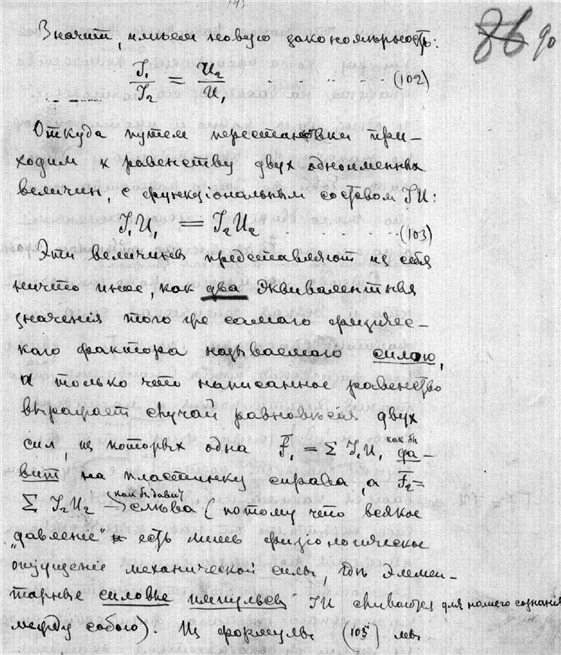 86 90
Значит, имѣем новую закономѣрность:
J₁/J₂ = U₂/U₁ . . . . . . (102)
Откуда путем перестановки при-
ходим к равенству двух одноименных
величин, с функціональным составом JU:
J₁U₁ = J₂U₂ . . . . . (103)
Эти величины представляют из себя
ничто иное, как два эквивалентныя
значенія того же самаго физичес-
каго фактора называемаго силою,
а только что написанное равенство
выражает случай равновѣсія двух
сил, из которых одна F₁ = Σ J₁U₁ как бы да-
вит на пластинку справа, а F₂ =
Σ J₂U₂ как бы давит слѣва (потому что всякое
„давленіе“ есть лишь физіологическое
ощущеніе механической силы, гдѣ элемен-
тарные силовые импульсы JU сливаются для нашего сознанія
между собою). Из формулы (103)